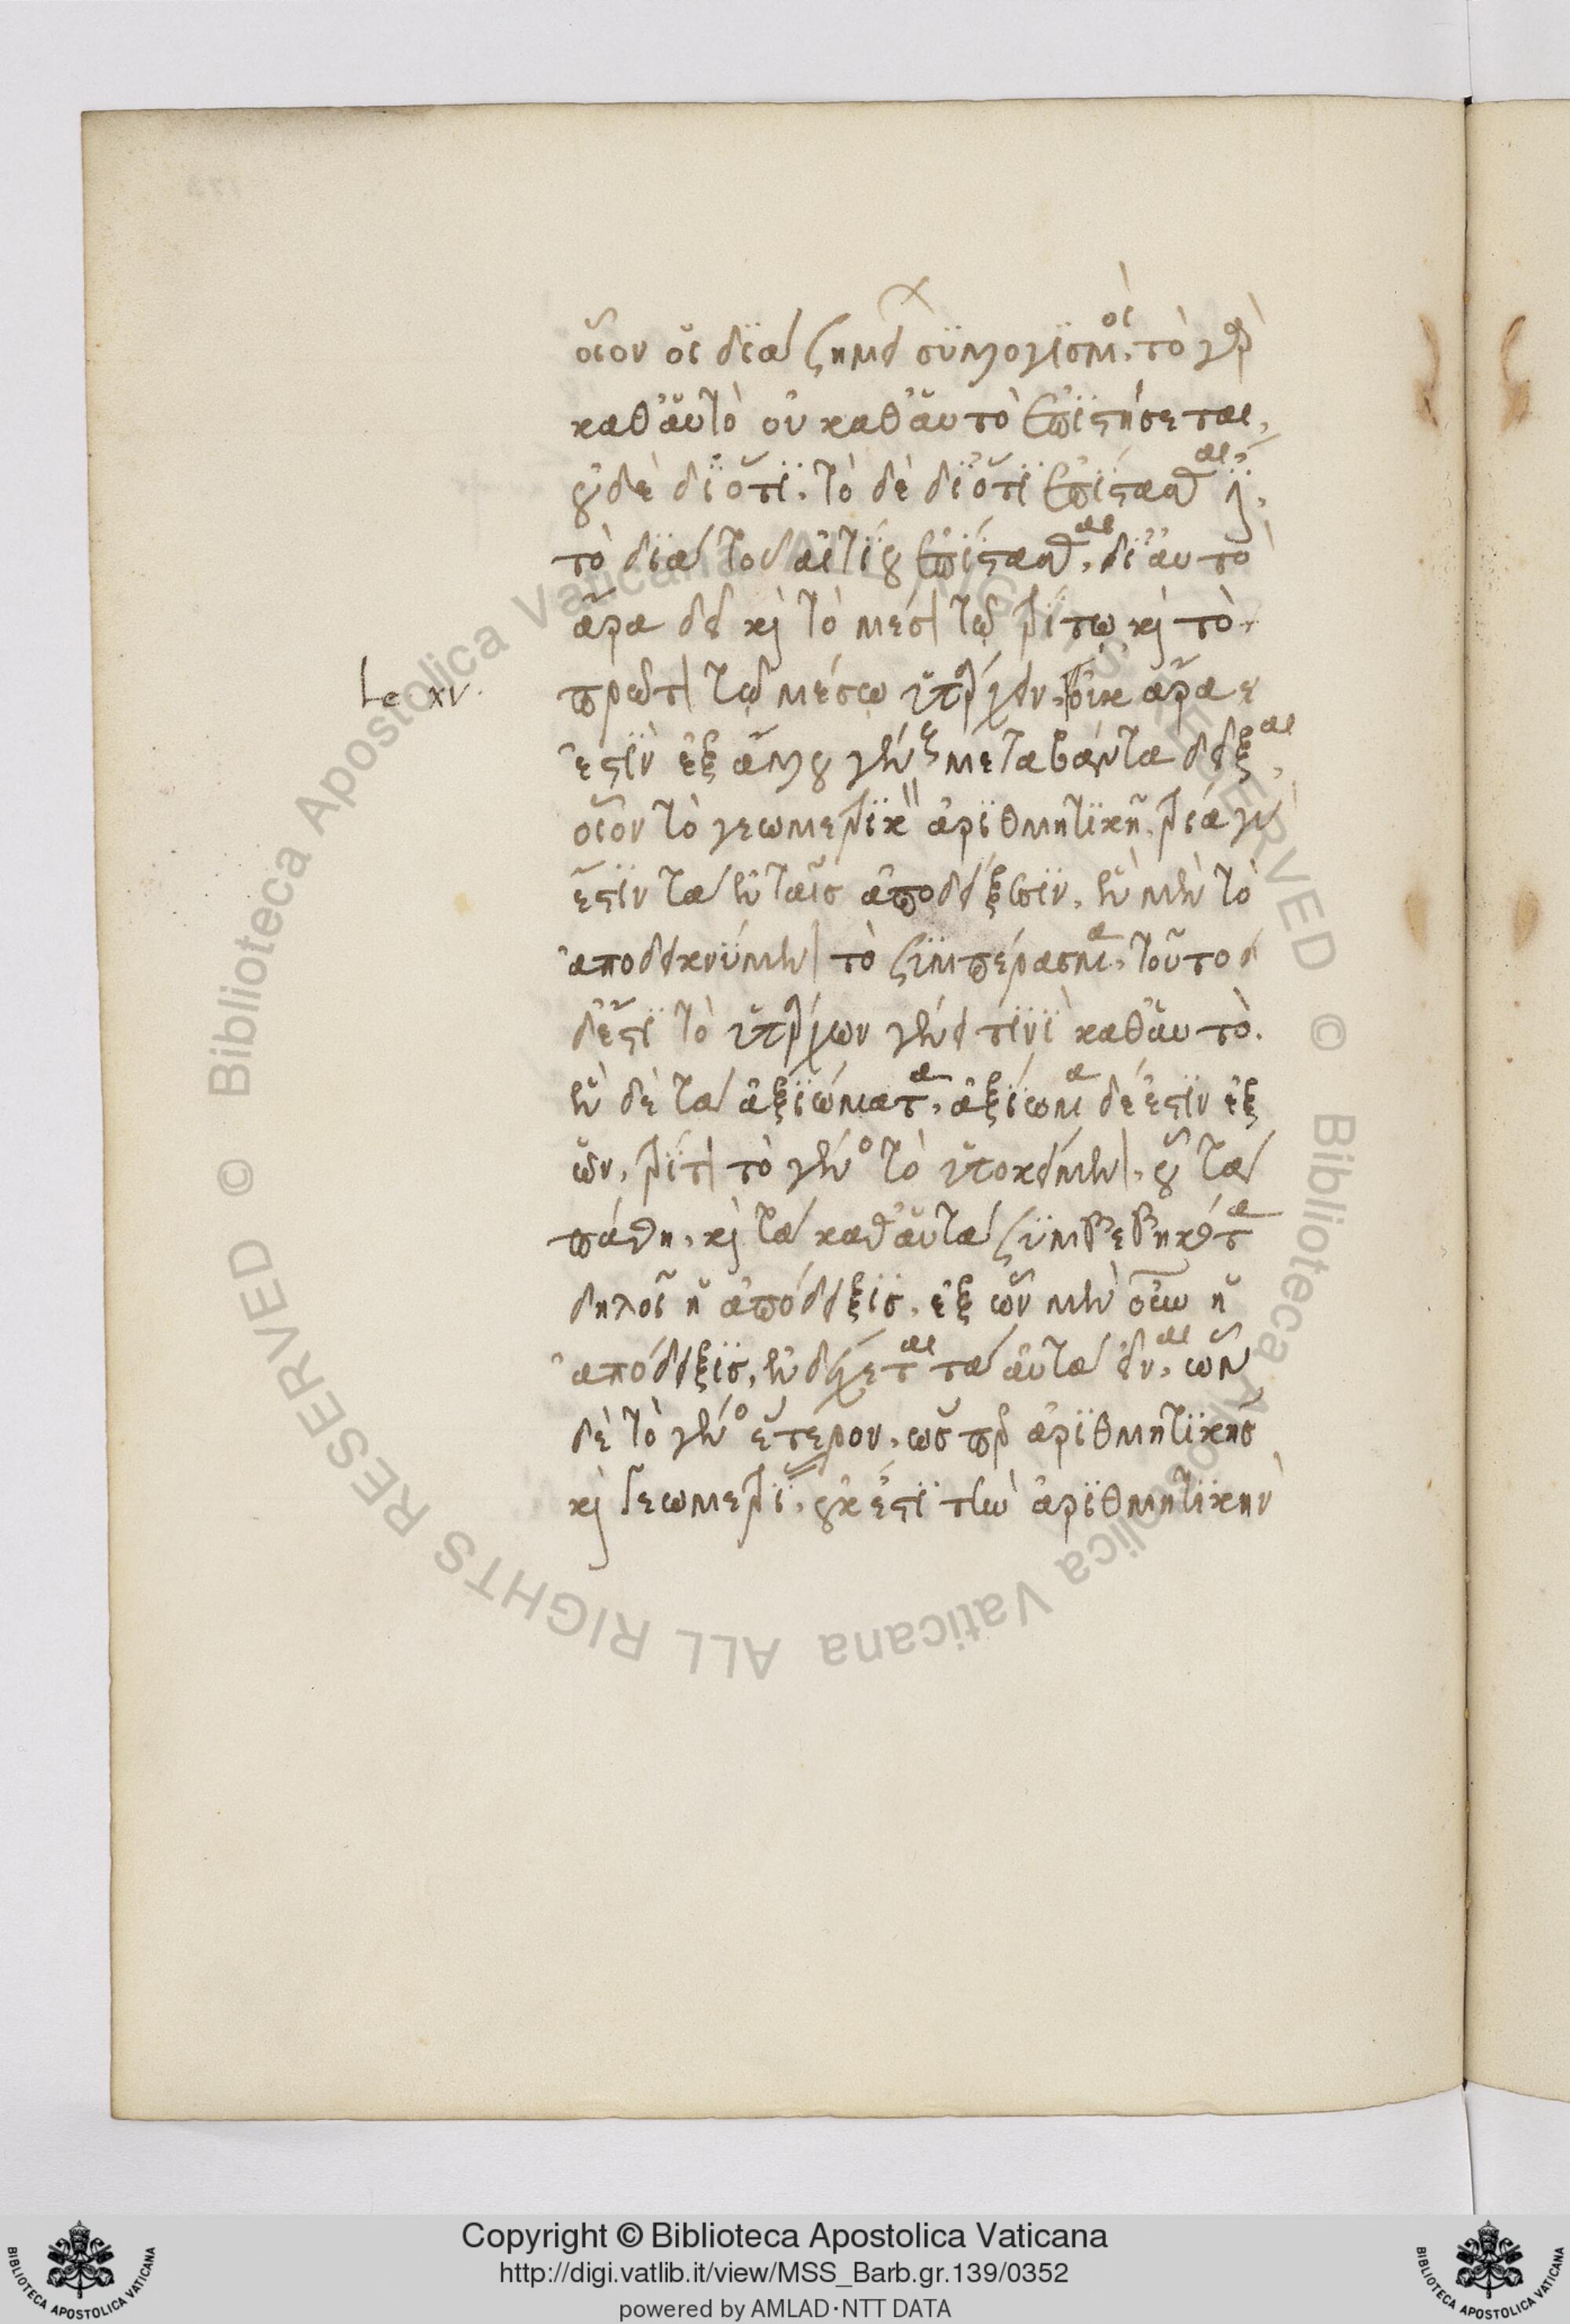 οἷον οἱ διὰ σημεί συλλογισμοὶ. τὸ γὰρ
καθ' αὑτὸ οὐ καθ' αὑτὸ ἐπιστήσεται,
οὐδὲ διότι. τὸ δὲ διότι ἐπίστασθαί ἐ,
τὸ διὰ τοῦ αἰτίου ἐπίστασθαι. δι' αὑτὸ
ἄρα δεῖ καὶ τὸ μέσον τῷ τρίτῳ καὶ τὸ
πρῶτον τῷ μέσῳ ὑπάρχειν. οὐκ ἄρα
Le xv.
ἐστὶν ἐξ ἄλλου γένους μεταβάντα δεῖξαι,
οἷον τὸ γεωμετρικὸν ἀριθμητικῇ. τρία γάρ
ἐστιν τὰ ἐν ταῖς ἀποδείξεσιν. ἓν μὲν τὸ
ἀποδεικνύμενον τὸ συμπέρασμα. τοῦτο
δ' ἐστὶ τὸ ὑπάρχων γένει τινὶ καθ' αὑτὸ.
ἓν δὲ τὰ ἀξιώματα. ἀξίωμα δέ ἐστιν ἐξ
ὧν. τρίτον τὸ γένος τὸ ὑποκείμενον. οὗ τὰ
πάθη. καὶ τὰ καθ' αὑτὰ συμβεβηκότα
δηλοῖ ἡ ἀπόδειξις. ἐξ ὧν μὲν οὖν ἡ
ἀπόδειξις, ἐνδέχεται τὰ αὐτὰ εἶναι. ὧν
δὲ τὸ γένος ἕτερον. ὥσπερ ἀριθμητικῆς
καὶ γεωμετρί. οὐκ ἔστι τὴν ἀριθμητικὴν
Copyright © Biblioteca Apostolica Vaticana
http://digi.vatlib.it/view/MSS_Barb.gr.139/0352
powered by AMLAD·NTT DATA
BIBLIOTECA APOSTOLICA VATICANA
BIBLIOTECA APOSTOLICA VATICANA
© Biblioteca Apostolica Vaticana ALL RIGHTS RESERVED © Biblioteca Apostolica Vaticana ALL RIGHTS RESERVED